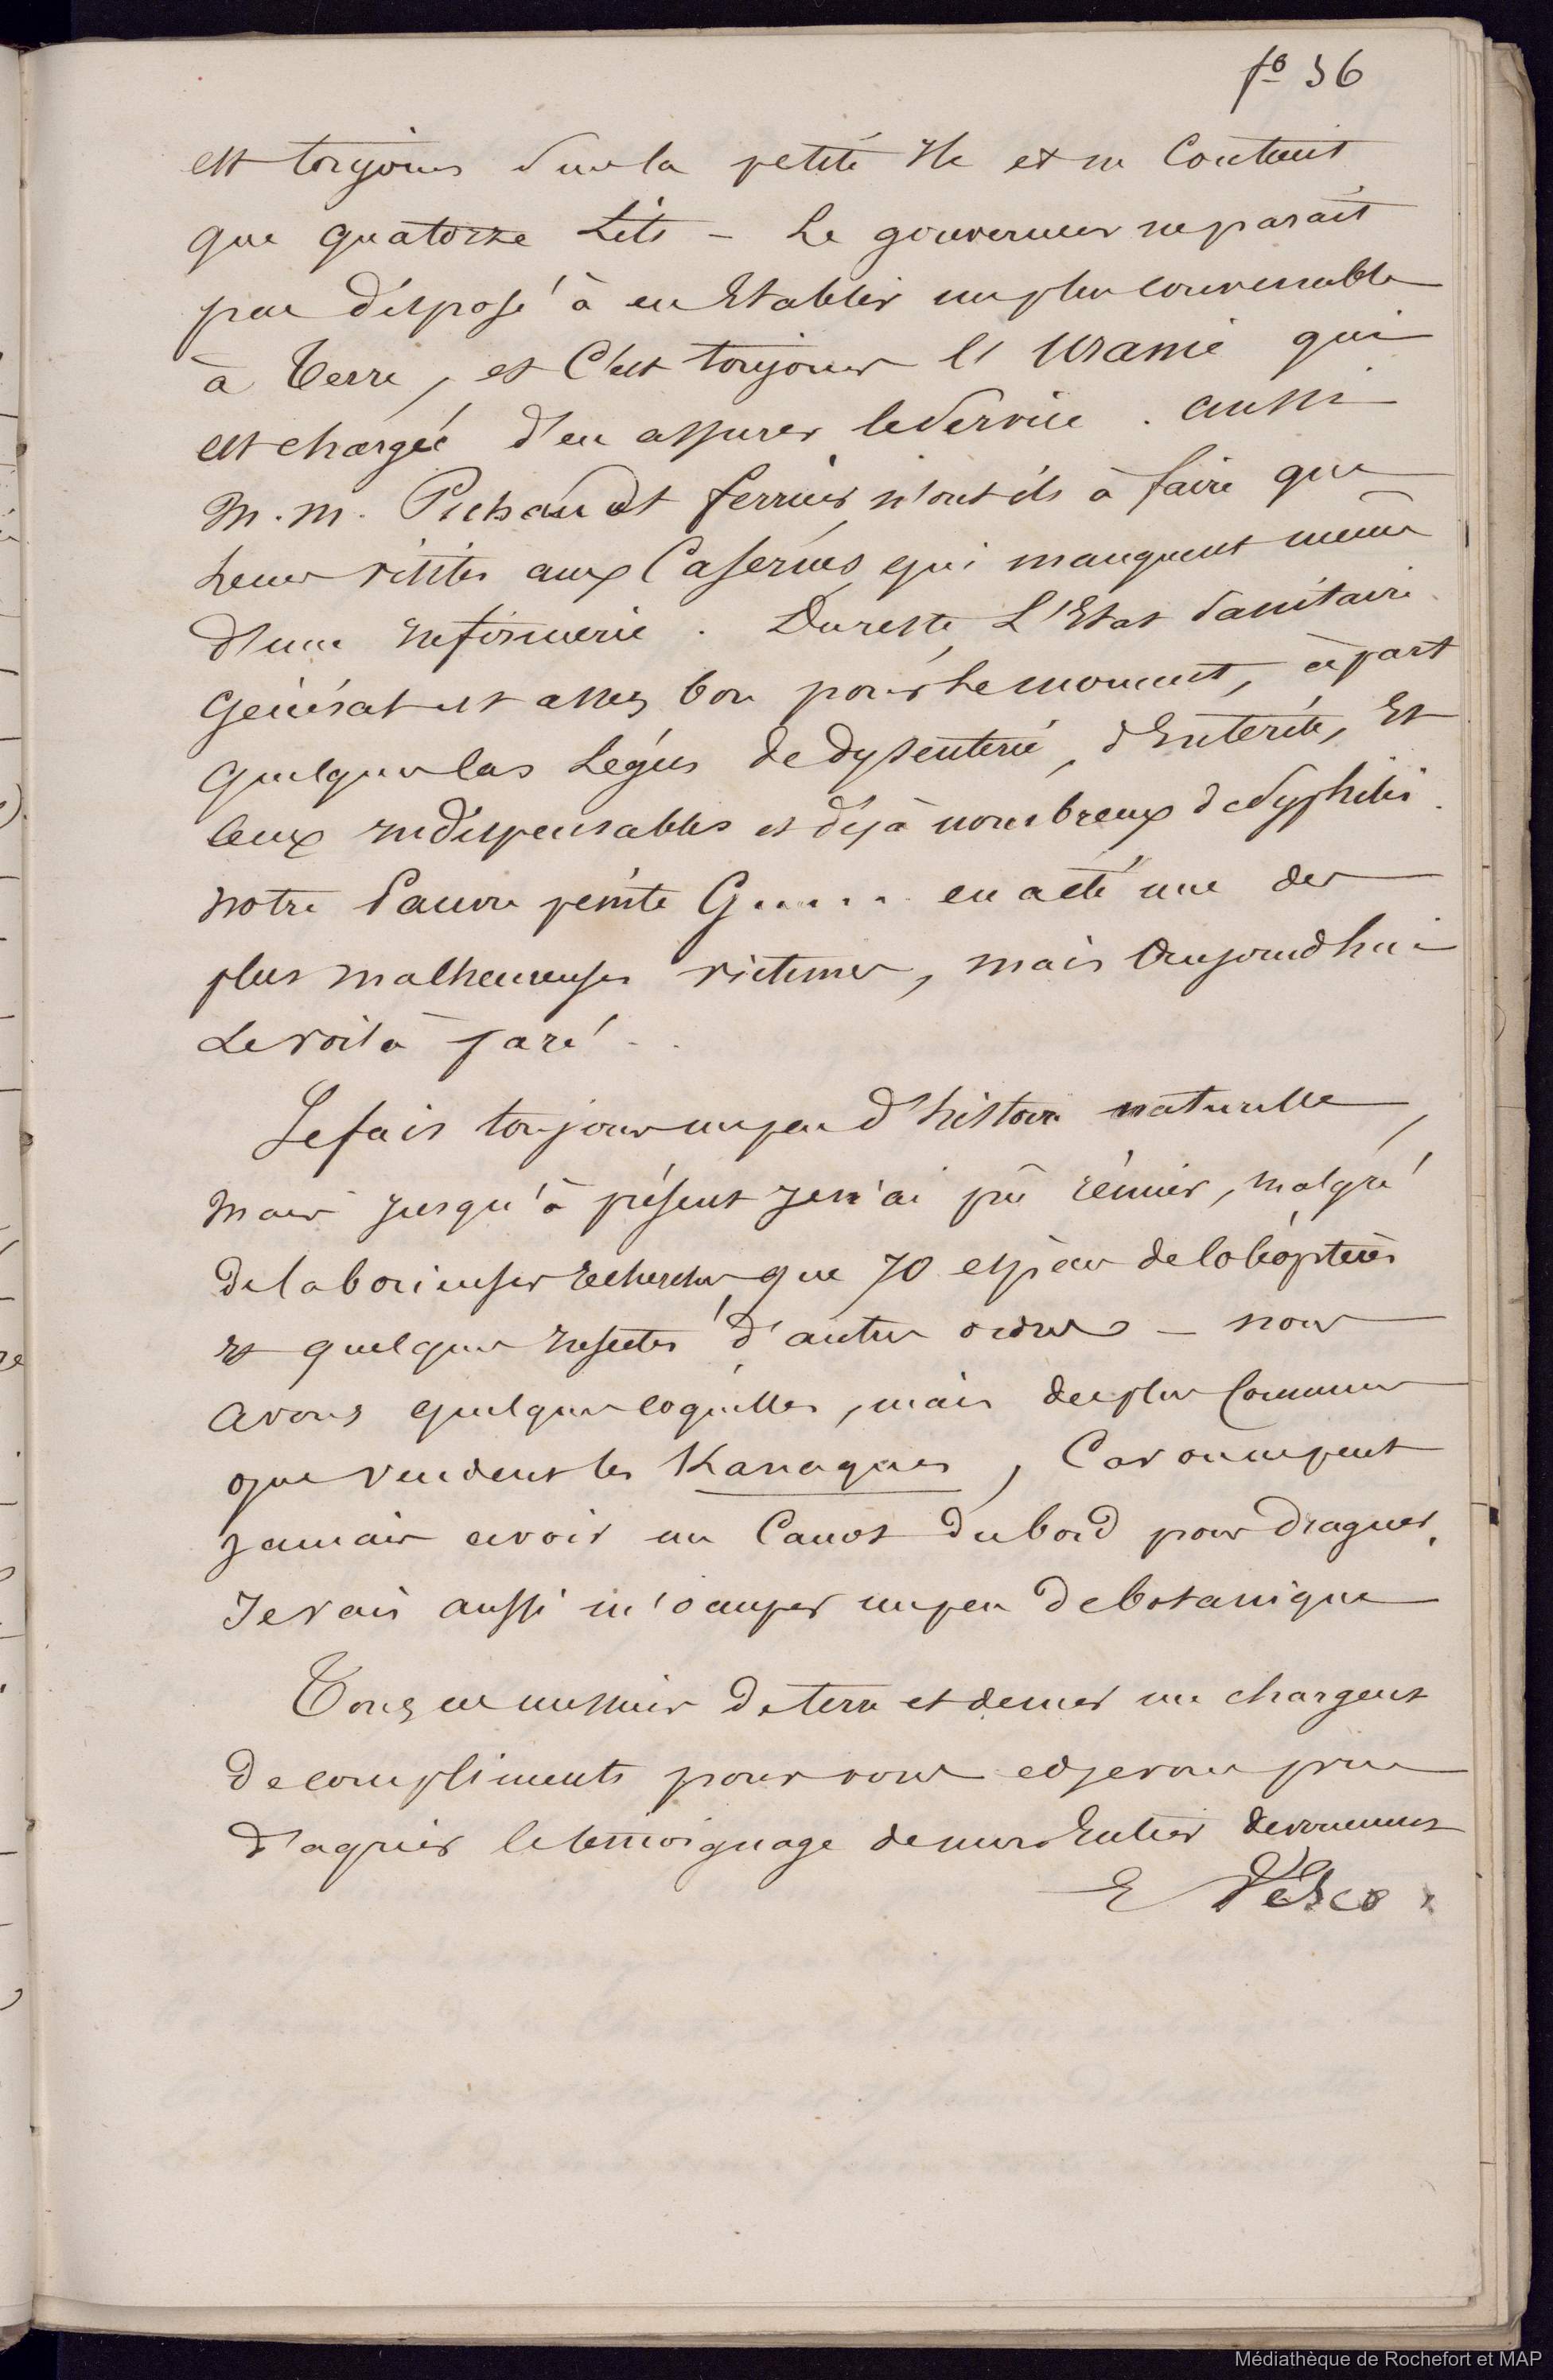 fo 36
est toujours sur la petite Ile et ne Contenait
que quatorze Lits - Le gouverneur ne parait
pas disposé à en Etablir un plus convenable
à Terre, et C'est toujours l'Uranie qui
est chargée d'en assurer le Service. aussi
M.M. et ferrier n'ont ils à faire que
Leurs visites aux Casernes, qui manquent même
d'une Infirmerie. Du reste, L'Etat Sanitaire
Général est assez bon pour le moment, à part
quelques Cas Légers de dysenterie, d'Entérite, Et
Ceux Indispensables et déjà nombreux de Syphilis.
notre Pauvre G..... en a été une des
plus malheureuses victimes, mais Aujourd'hui
Le voilà paré..
Je fais toujours un peu d'histoire naturelle,
Mais jusqu'à présent je n'ai pû réunir, malgré
de laborieuses recherches, que 70 espèces de Coléoptères
et quelques Insectes d'autres ordres - nous
avons quelques coquilles, mais des plus Communes
que vendent les Kanaques, Car on ne peut
Jamais avoir un Canot du bord pour draguer.
Je vais aussi m'occuper un peu de botanique
Tous ces messieurs de terre et de mer me chargent
de compliments pour vous et je vous prie
d'agréer le témoignage de mon Entier dévouement
E Vesco
Médiathèque de Rochefort et MAP